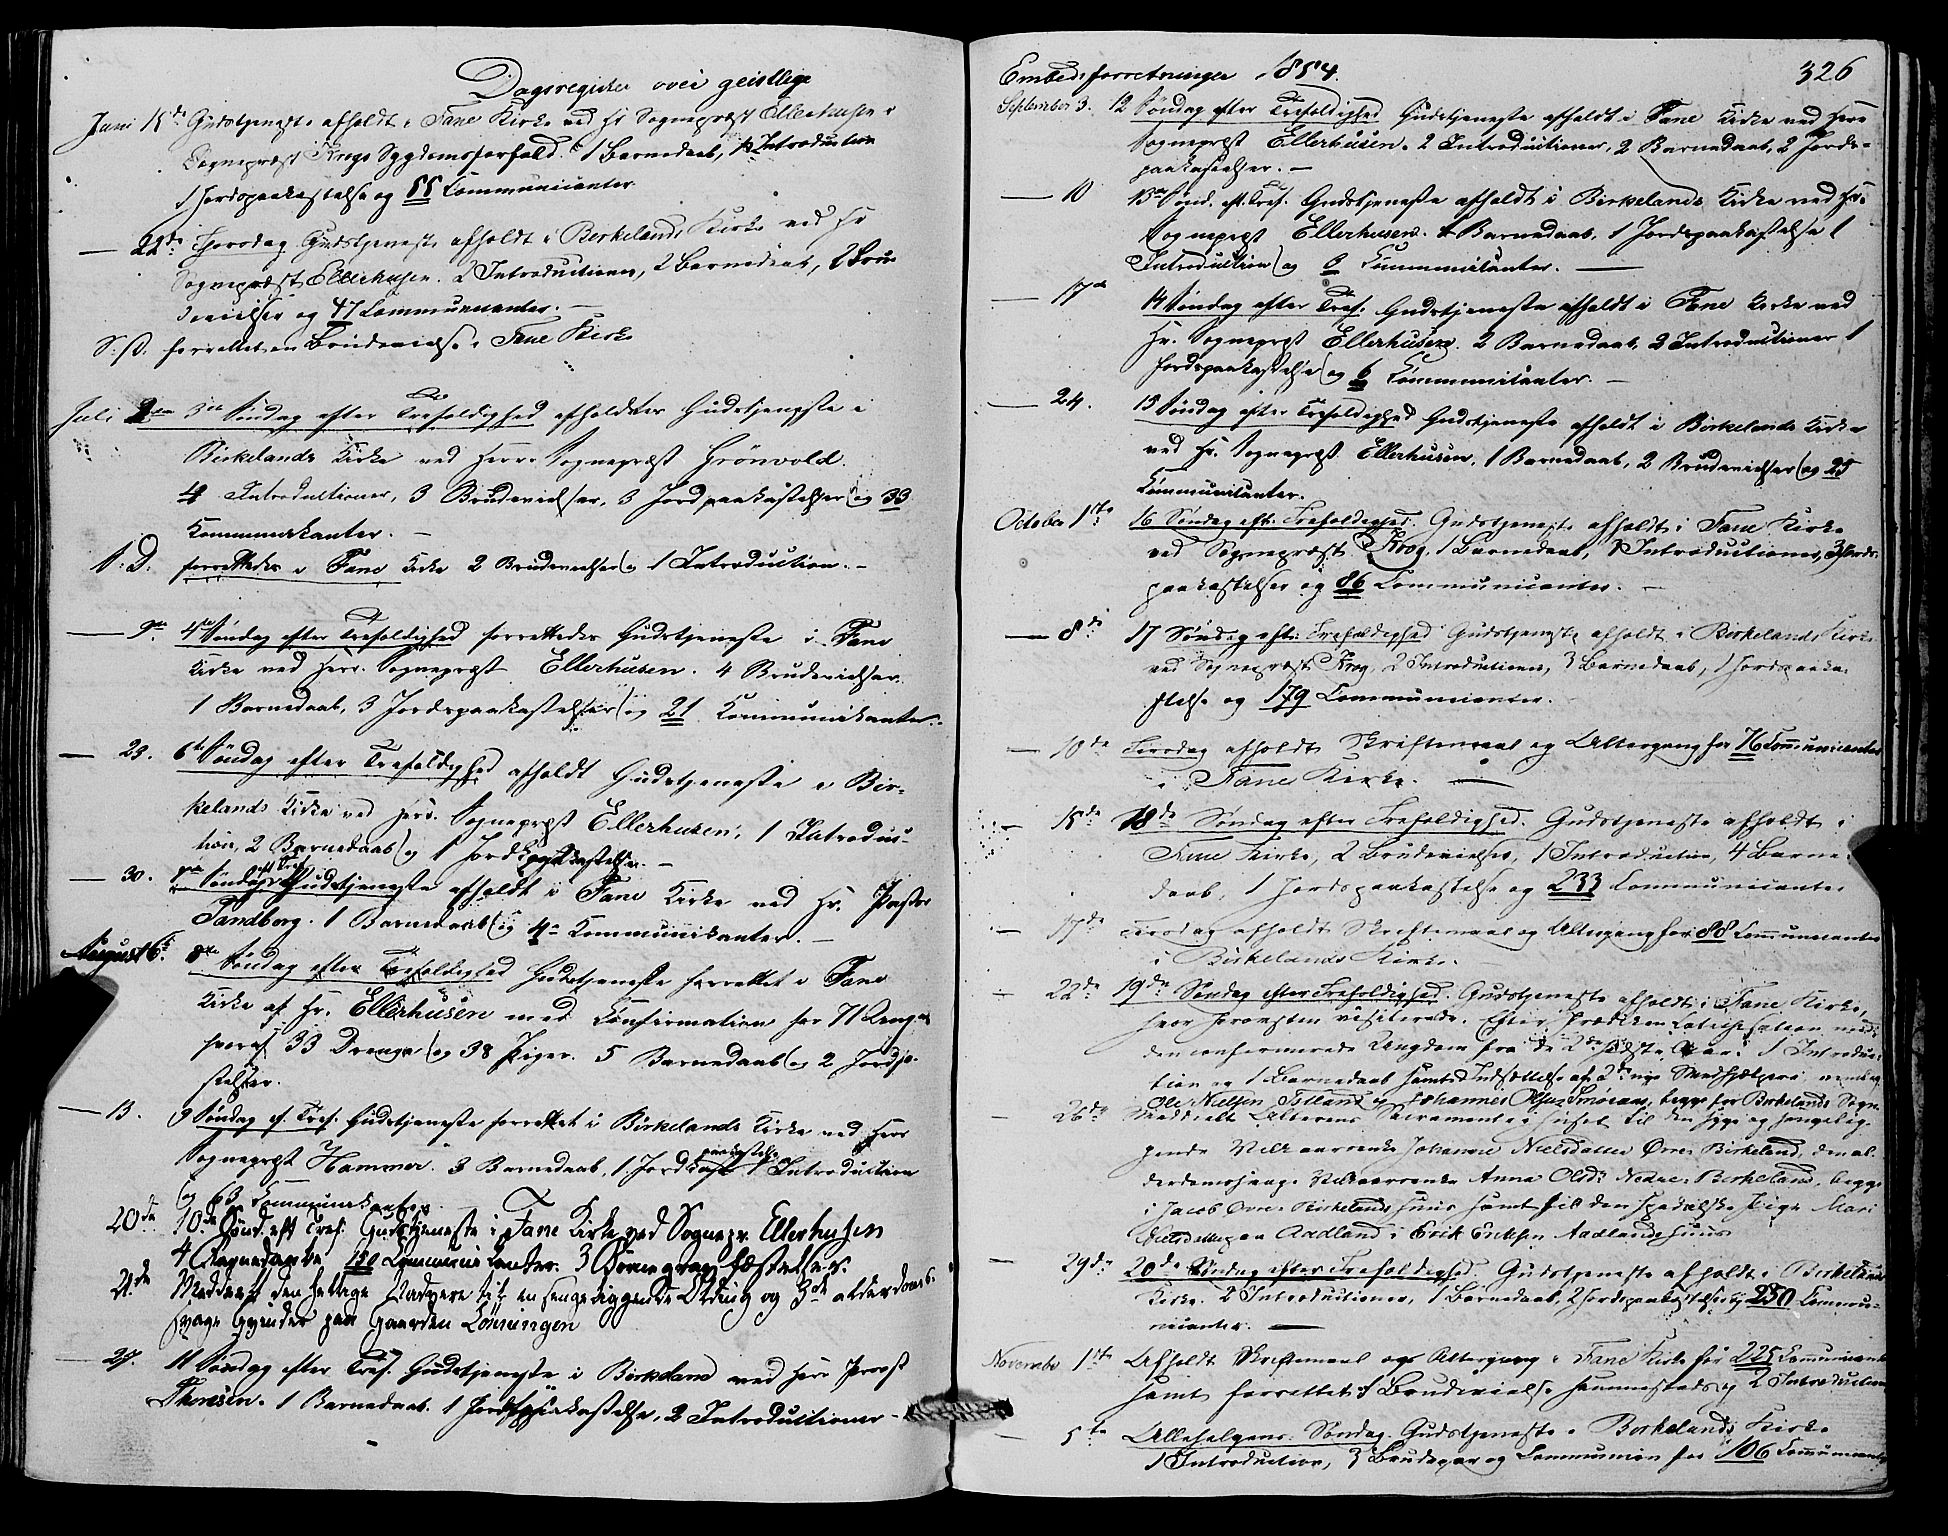 Dagsregister over geistlige
Juni 18de Gudstjeneste afholdt i Fane Kirke ved Hr Sognepræst Ellerhusen i
Sognepræst Krogs Sygdomsforfald. 1 Barnedaab, Introduction
1 Jordspaakastelse og 55 Communicanter.
— 22de Torsdag Gudstjeneste afholdt i Berkelands Kirke ved Hr
Sognepræst Ellerhusen. 2 Introductioner, 2 Barnedaab, 2 Bru
devielser og 47 Communicanter. —
S. D. forrettet en Brudevielse i Fane Kirke
Juli 2den 3die Søndag efter Trefoldighed afholdtes Gudstjeneste i
Birkelands Kirke ved Herr Sognepræst Grönvold.
4 Introductioner, 3 Brudevielser, 3 Jordpaakastelser og 33
Kommunikanter. —
S. D. forrettedes i Fane Kirke 2 Brudevielser og 1 Introduction. —
— 9de 4de Søndag efter Trefoldighed forrettedes Gudstjeneste i Fane
Kirke ved Herr. Sognepræst Ellerhusen. 4 Brudevielser.
1 Barnedaab, 3 Jordspaakastelser og 21 Kommunikanter.
— 23. 6te Søndag efter Trefoldighed afholdt Gudstjeneste i Bir-
kelands Kirke ved Herr. Sognepræst Ellerhusen, 1 Introduc-
tion, 2 Barnedaab og 1 Jordspaakastelse. —
— 30. 7de Søndag eft Tref Gudstjeneste afholdt i Fane Kirke ved Hr. Pastor
Sandberg. 1 Barnedaab og 4 Kommunikanter. —
August 6te 8de Søndag efter Trefoldighed Gudstjeneste forrettet i Fane
Kirke af Hr. Ellerhusen med Confirmation for 71 Unge
hvoraf 33 Drenge og 38 Piger. 5 Barnedaab og 2 Jordpa-
stelser.
— 13. 9 Søndag ef. Tref. Gudstjeneste forrettet i Birkelands Kirke ved Herr
Sognepræst Hammer. 3 Barnedaab, 1 Jordpaakastelse 1 Introduction
og 63 Communikanter
20de 10de Sønd. eft Tref. Gudstjeneste i Fane Kirke ved Sognepr. Ellerhusen
4 Barnedaab 150 Communikanter. 3 Jordpaakastelser.
21de Meddeelt den hellige Nadvere til en sengeliggende Olding og 3de alderdoms
svage Qvinder paa Gaarden Lönningen
— 27. 11 Søndag efter Tref. Gudstjeneste i Birkeland ved Herr Provst
Thoresen. 1 Barnedaab. 1 Jordspaakastelse, 2 Introductioner —
Embedsforretninger 1854. 326
September 3. 12 Søndag efter Trefoldighed Gudstjeneste afholdt i Fane Kirke ved Herr
Sognepræst Ellerhusen. 2 Introductioner, 2 Barnedaab, 2 Jords-
paakastelser. —
— 10 13de Sønd. eft. Tref. Gudstjeneste afholdt i Birkelands Kirke ved Hr.
Sognepræst Ellerhusen. Barnedaab, 1 Jordspaakastelse 1
Introduction og 6 Kommunikanter. —
— 17de 14 Søndag efter Tref. Gudstjeneste afholdt i Fane Kirke ved
Hr. Sognepræst Ellerhusen. 2 Barnedaab, 2 Introductioner 1
Jordspaakastelse og 6 Kommunikanter. —
— 24. 15 Søndag efter Trefoldighed Gudstjeneste afholdt i Birkelands Kirke
ved Hr. Sognepræst Ellerhusen, 1 Barnedaab, 2 Brudevielser og 25
Kommunikanter.
October 1ste 16 Søndag eft. Trefoldighed. Gudstjeneste afholdt i Fane Kirke
ved Sognepræst Krog. 1 Barnedaab, Introductioner, 3 Jords-
paakastelser og 86 Communicanter. —
— 8de 17 Søndag eft. Trefoldighed Gudstjeneste afholdt i Birkelands Kirke
ved Sognepræst Krog, 2 Introductioner, 3 Barnedaab, 1 Jordspaaka-
stelse og 179 Communicanter.
— 10de Tirsdag afholdt Skriftemaal og Altergang for 76 Communicanter
i Fane Kirke. —
— 15de 18de Søndag efter Trefoldighed. Gudstjeneste afholdt i
Fane Kirke, 2 Brudevielser, 1 Introduction, 4 Barne-
daab, 1 Jordspaakastelse og 233 Communicanter
— 17de Tirsdag afholdt Skriftemaal og Altergang for 88 Communicanter
i Birkelands Kirke.
— 22de 19de Søndag efter Trefoldighed. Gudstjeneste afholdt i Fane Kirke,
hvor Provsten visiterede. Efter Prædiken Catechisation med
den confirmerede Ungdom fra de 2de sidste Aar. 1 Introduc-
tion og 1 Barnedaab samt Indsættelse af 2de nye Medhjælpere, nemlig
Ole Nielsen Totland og Johannes Olsen Smøraas, begge for Birkelands Sogn.
— 26de Meddeelt Alterens Sacramente i Huset til den syge og sengelig-
gende Johanne Nielsdatter Øvre Birkeland, den al-
derdomssvage Anna Olsd. Nedre Birkeland, begge
i Jacob Øvre Birkelands Huus samt til den spedalske Pige Mari
Nielsdatter paa Aadland i Erik Eriksen Aadlands Huus
— 29de 20de Søndag efter Trefoldighed. Gudstjeneste afholdt i Birkelands
Kirke. 2 Introductioner, 1 Barnedaab, 2 Jordspaakastelser og 250 Commu-
nicanter. —
November 1ste Afholdt Skriftemaal og Altergang i Fane Kirke for 225 Communicanter
samt forrettet 1 Brudevielse sammesteds og 2 Introductioner
— 5te Allehelgens Søndag. Gudstjeneste i Birkelands Kirke
1 Introduction, 3 Brudepar og Communion for 106 Communicanter